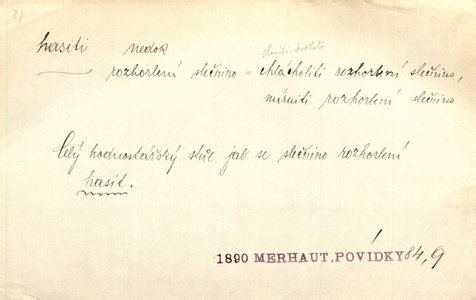 2)
hasiti nedok.
rozhorlení slečnino = chlácholiti rozhorlení slečnino,
mírniti rozhorlení slečnino
Celý hodnostářský stůl jal se slečnino rozhorlení
hasit.
1890 MERHAUT, POVÍDKY 84, 9